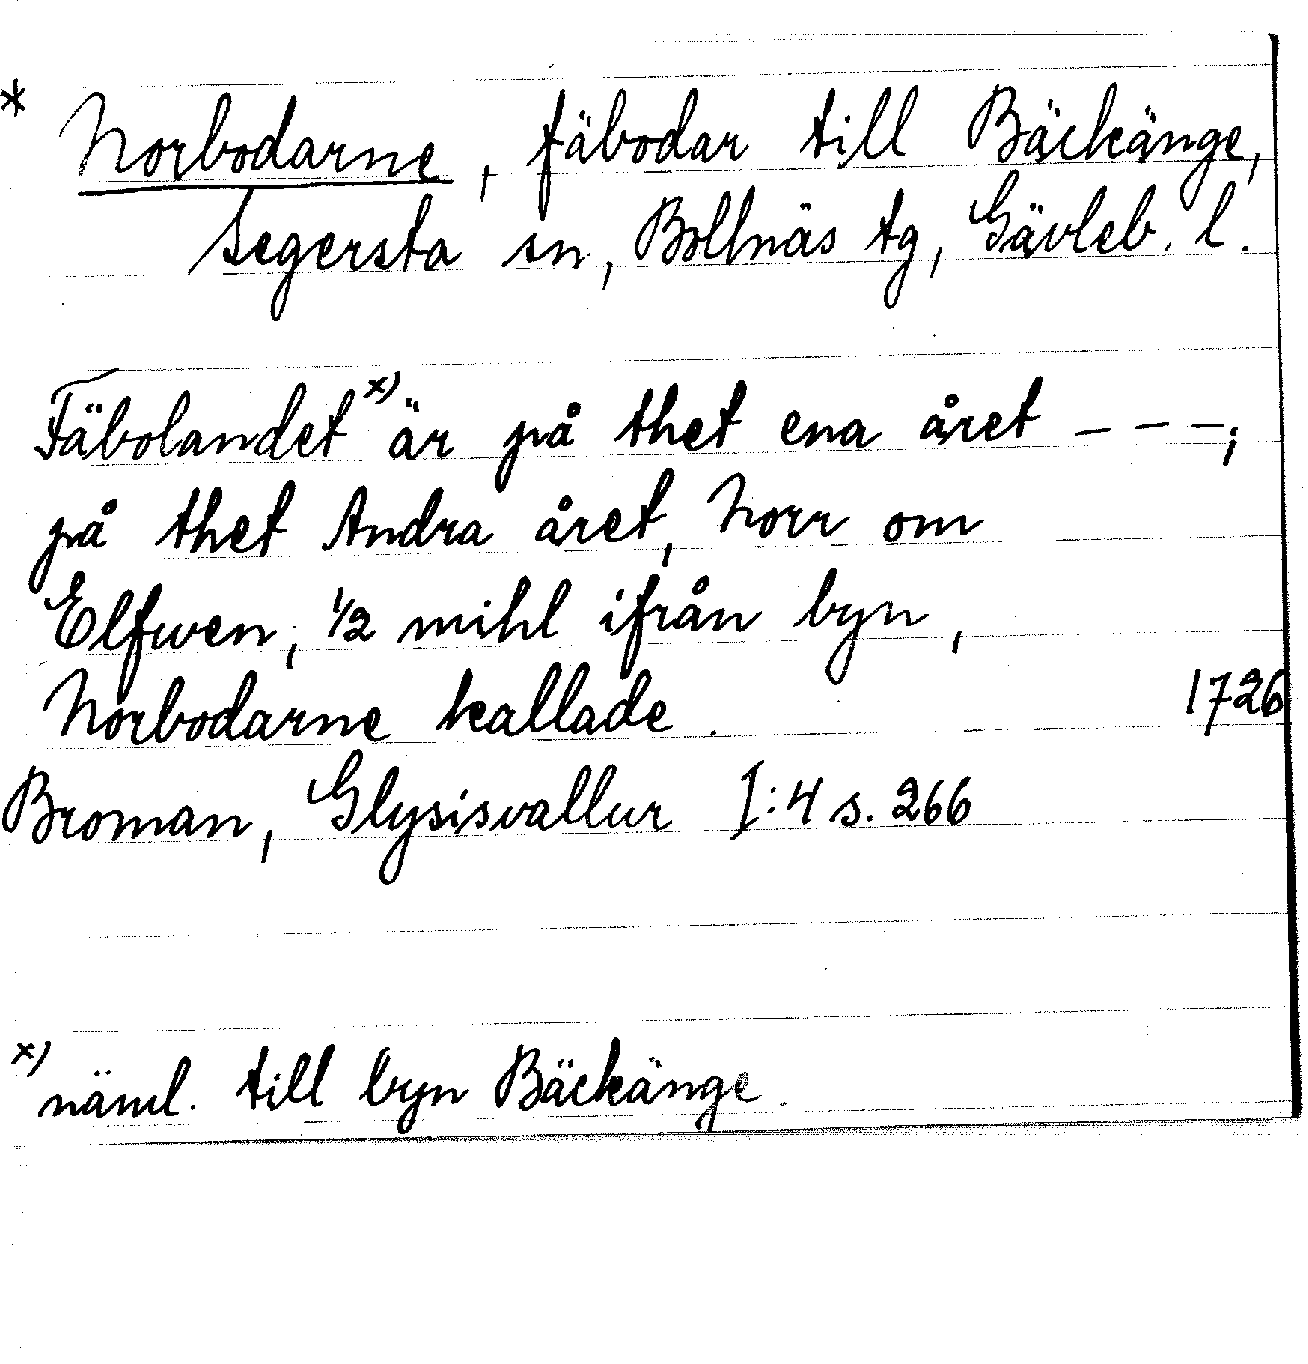 * Norbodarne, fäbodar till Bäckänge,
Segersta sn, Bollnäs tg, Gävleb. l.
Fäbolandet x) är på thet ena året - - -;
på thet Andra året, Norr om
Elfwen, 1/2 mihl ifrån byn,
Norbodarne kallade. 1726
Broman, Glysisvallur I:4 s. 266
x) näml. till byn Bäckänge.